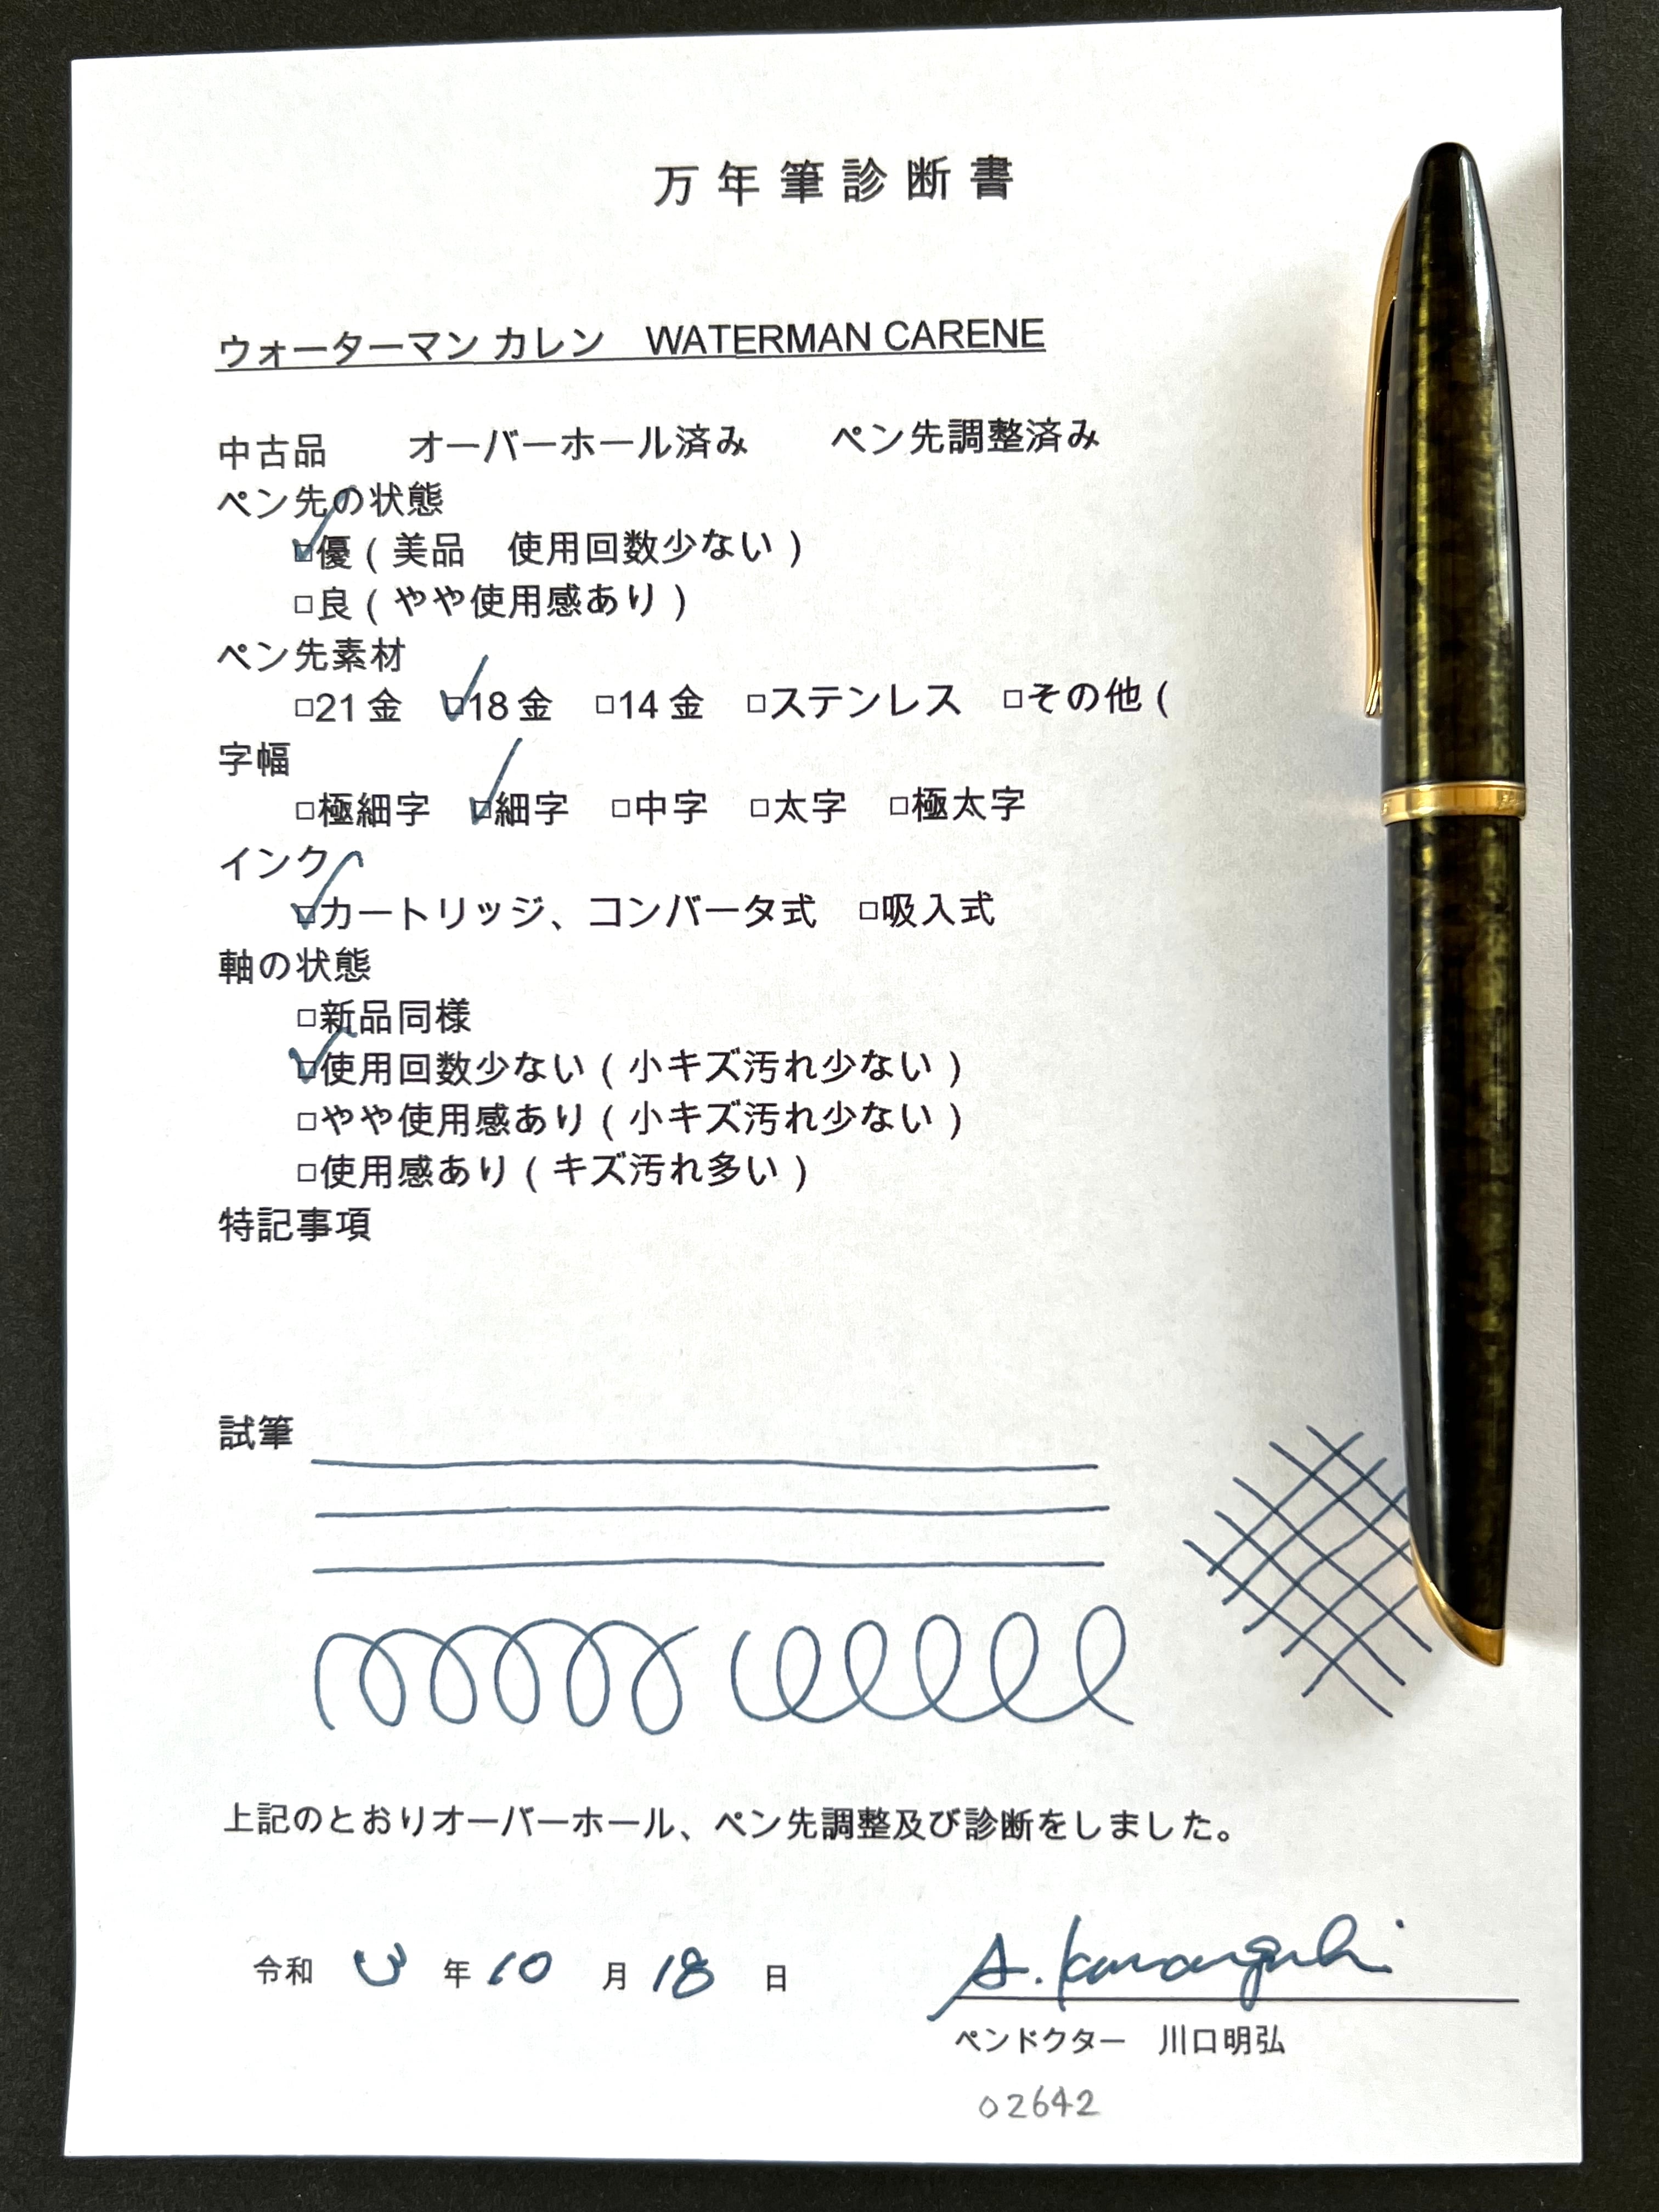 万年筆診断書
ウォーターマン カレン　WATERMAN CARENE
中古品　　オーバーホール済み　　ペン先調整済み
ペン先の状態
☑優（美品　使用回数少ない）
□良（やや使用感あり）
ペン先素材
□21金　☑18金　□14金　□ステンレス　□その他（
字幅
□極細字　☑細字　□中字　□太字　□極太字
インク
☑カートリッジ、コンバータ式　□吸入式
軸の状態
□新品同様
☑使用回数少ない（小キズ汚れ少ない）
□やや使用感あり（小キズ汚れ少ない）
□使用感あり（キズ汚れ多い）
特記事項
試筆
上記のとおりオーバーホール、ペン先調整及び診断をしました。
令和 3 年 10 月 18 日
A. Kawaguchi
ペンドクター　川口明弘
02642